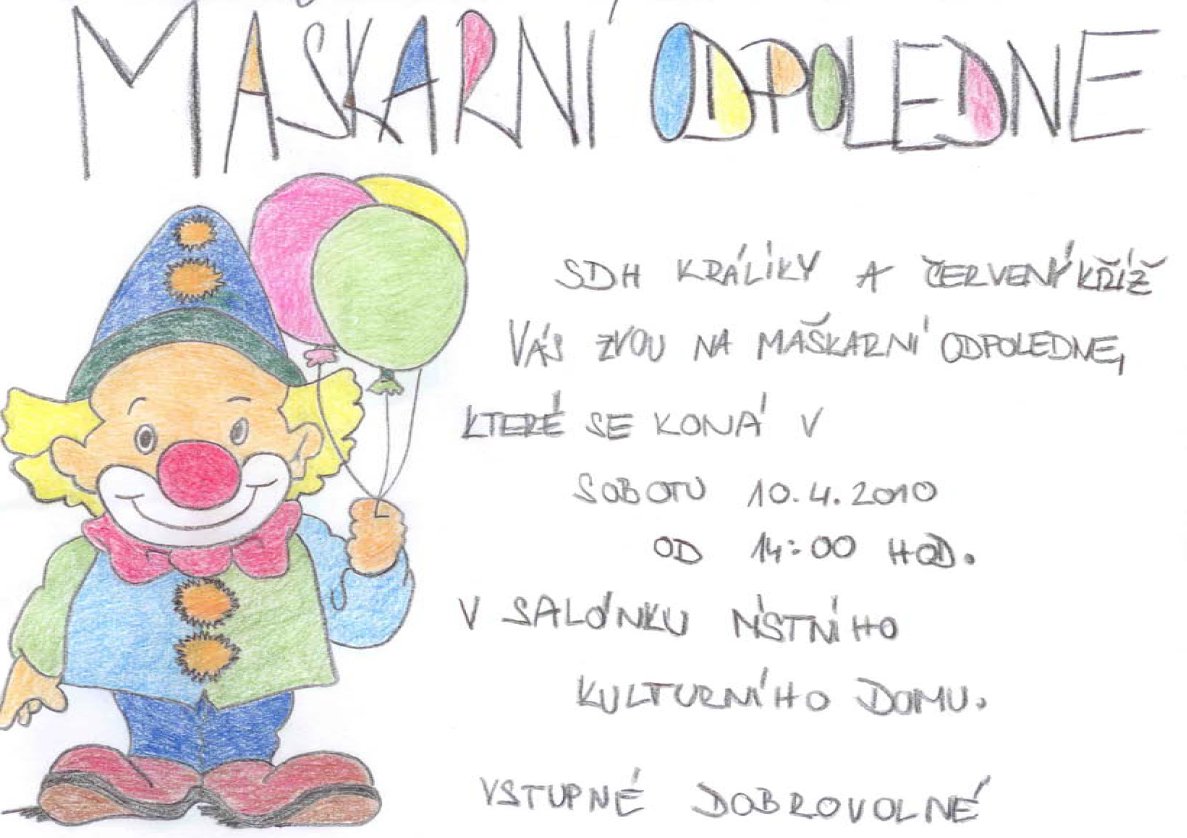 MAŠKARNÍ ODPOLEDNE
SDH KRÁLÍKY A ČERVENÝ KŘÍŽ
VÁS ZVOU NA MAŠKARNÍ ODPOLEDNE,
KTERÉ SE KONÁ V
SOBOTU 10.4.2010
OD 14:00 HOD.
V SALÓNKU MÍSTNÍHO
KULTURNÍHO DOMU.
VSTUPNÉ DOBROVOLNÉ